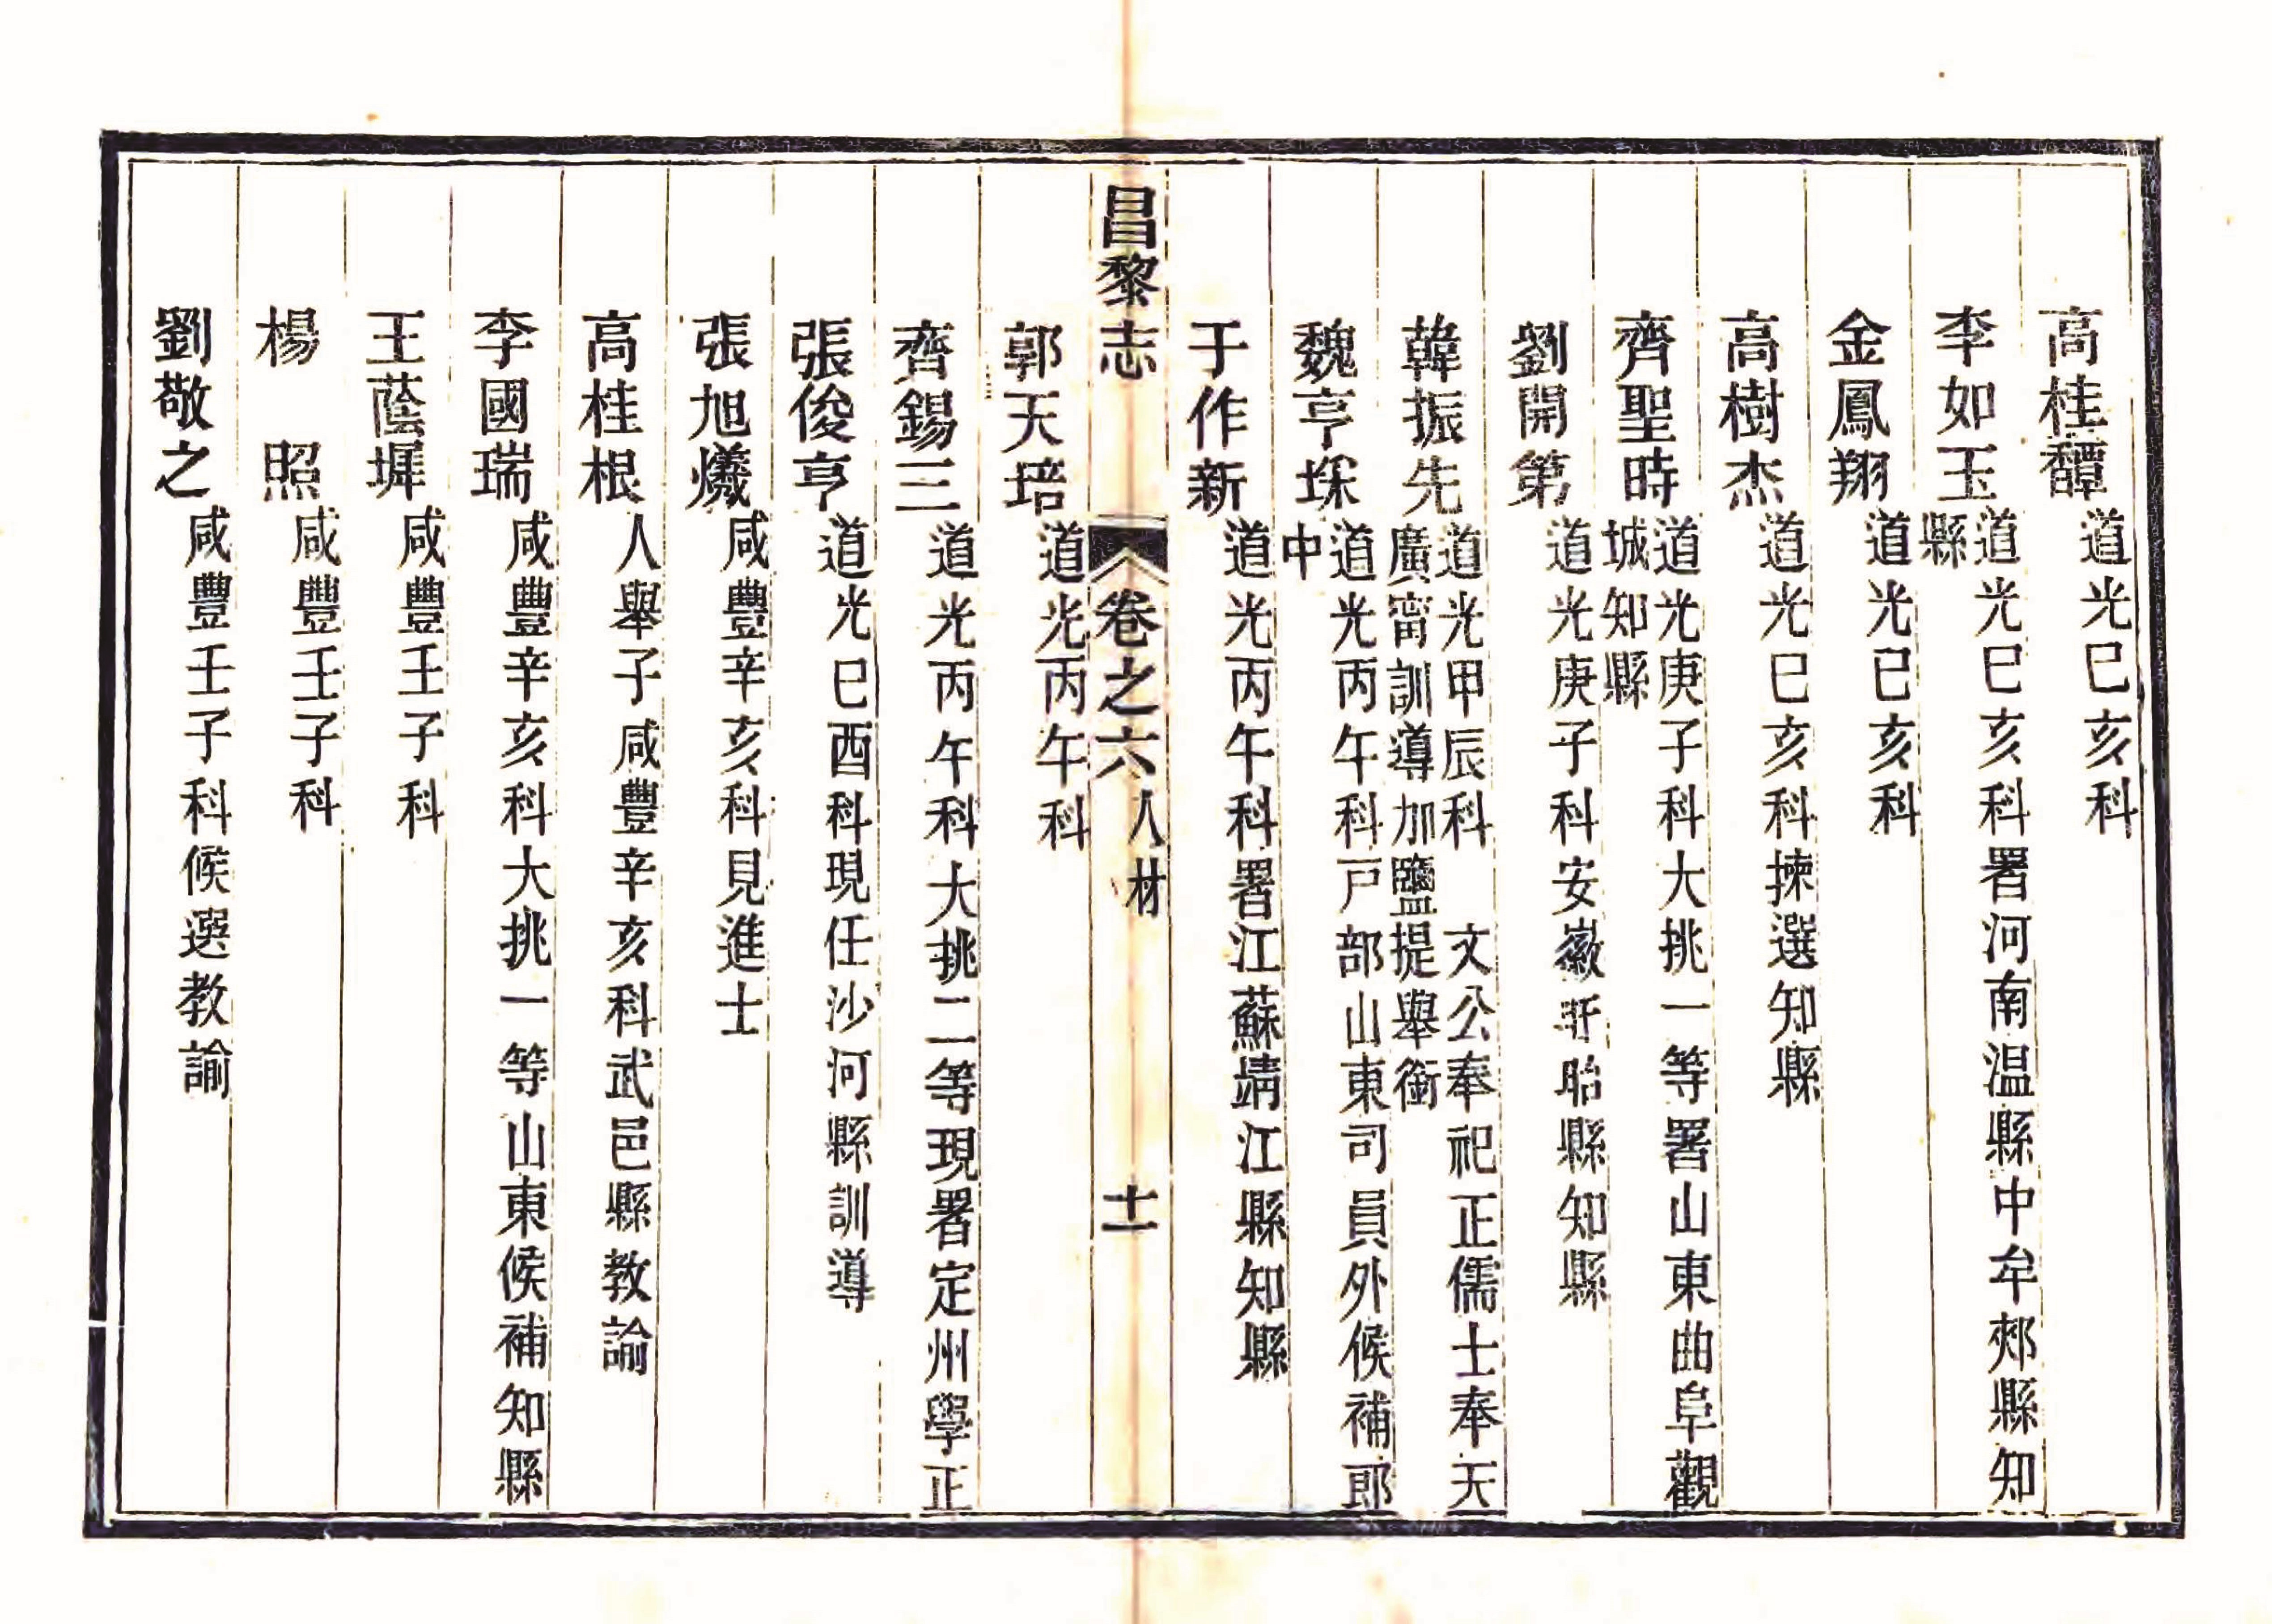 高桂馨道光巳亥科
李如玉道光巳亥科署河南温縣中牟郟縣知
縣
金鳳翔道光巳亥科
高樹杰道光巳亥科揀選知縣
齊聖時道光庚子科大挑一等署山東曲阜觀
城知縣
劉開第道光庚子科安徽盱眙縣知縣
韓振先道光甲辰科　文公奉祀正儒士奉天
廣甯訓導加鹽提舉銜
魏亨埰道光丙午科戸部山東司員外候補郎
中
于作新道光丙午科署江蘇靖江縣知縣
昌黎志　卷之六　人材　十一
郭天培道光丙午科
齊錫三道光丙午科大挑二等現署定州學正
張俊亨道光巳酉科現任沙河縣訓導
張旭爔咸豐辛亥科見進士
高桂根人舉子咸豐辛亥科武邑縣教諭
李國瑞咸豐辛亥科大挑一等山東候補知縣
王蔭墀咸豐壬子科
楊　照咸豐壬子科
劉敬之咸豐壬子科候選教諭